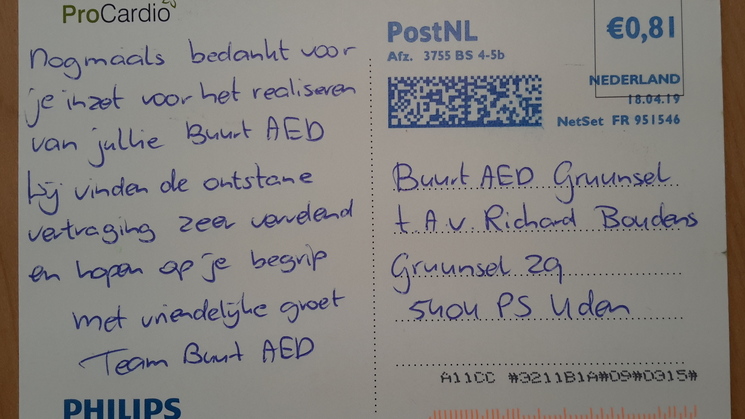 ProCardio
Nogmaals bedankt voor
je inzet voor het realiseren
van jullie Buurt AED
Wij vinden de ontstane
vertraging zeer vervelend
en hopen op je begrip
met vriendelijke groet
Team Buurt AED
PHILIPS
PostNL
€0,81
Afz. 3755 BS 4-5b
NEDERLAND
18.04.19
NetSet FR 951546
Buurt AED Gruunsel
t.A.v. Richard Boudens
Gruunsel 29
5404 PS Uden
A11CC #3211B1A#09#0315#